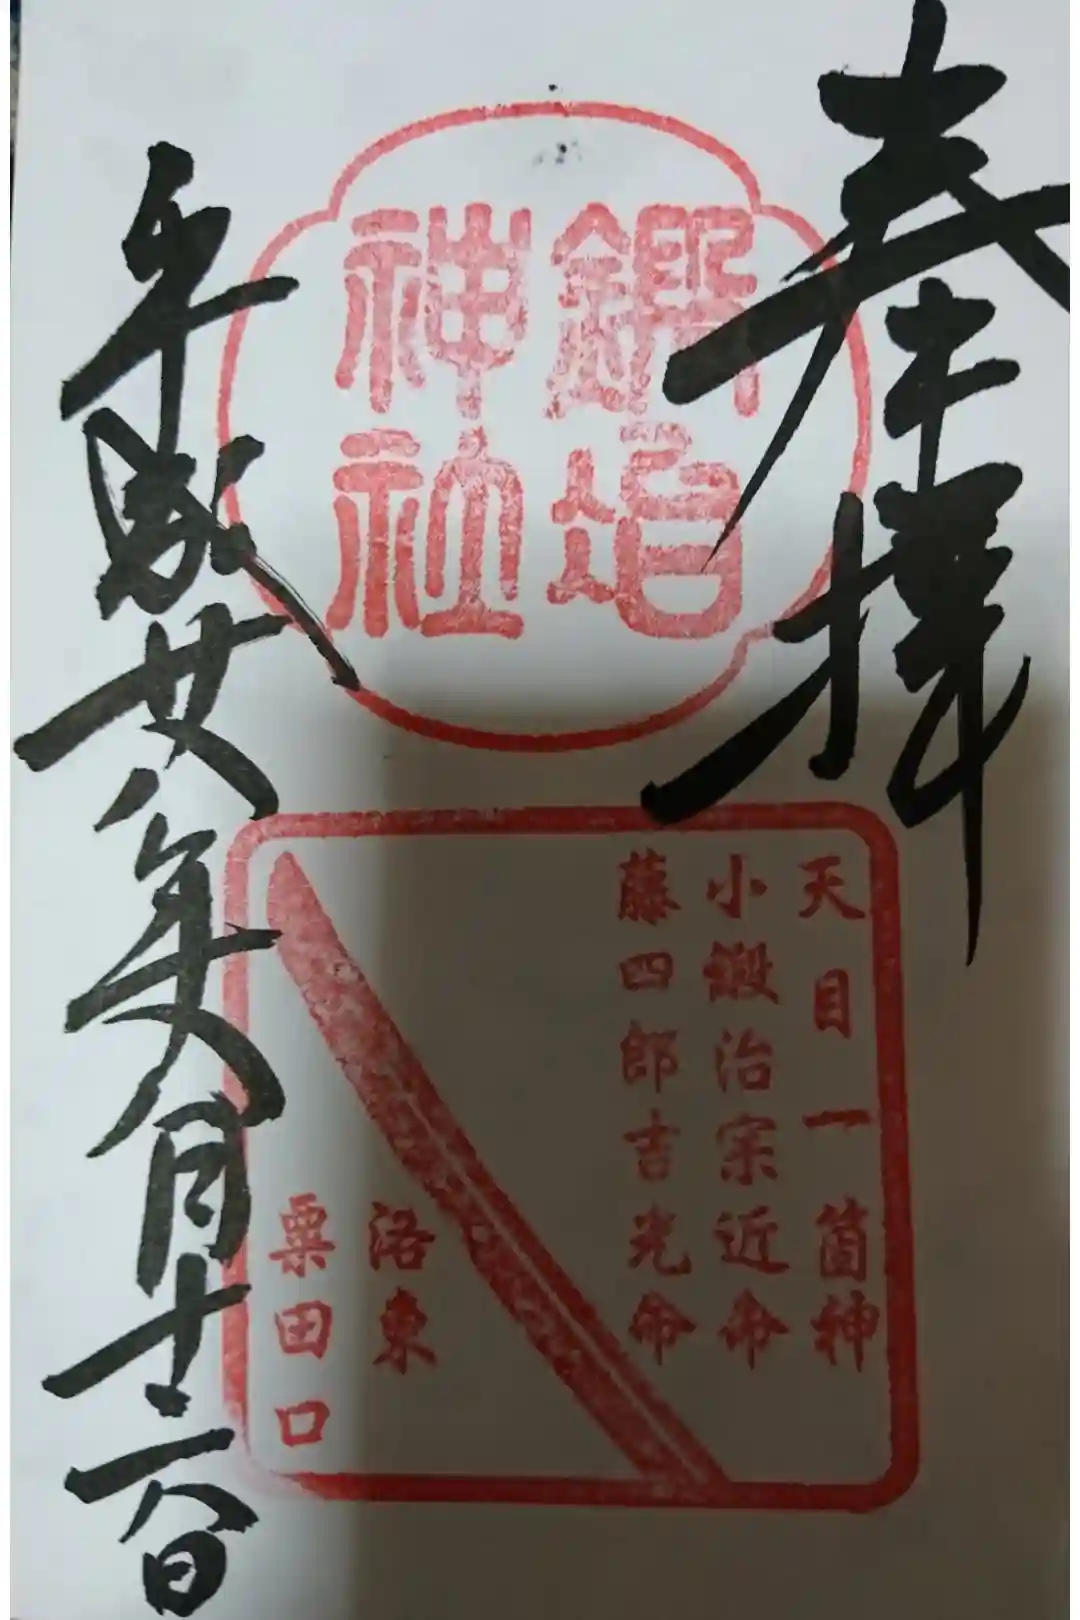 奉拝
鍛冶
神社
天目一箇神
小鍛治宗近命
藤四郎吉光命
洛東
粟田口
平成廿八年八月十六日